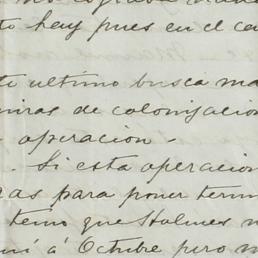 to hay pues en el ca
te ultimo busca ma
miras de colonizacion
operacion.
. Si esta operacion
para poner term
temo que Holmes
á Octubre pero